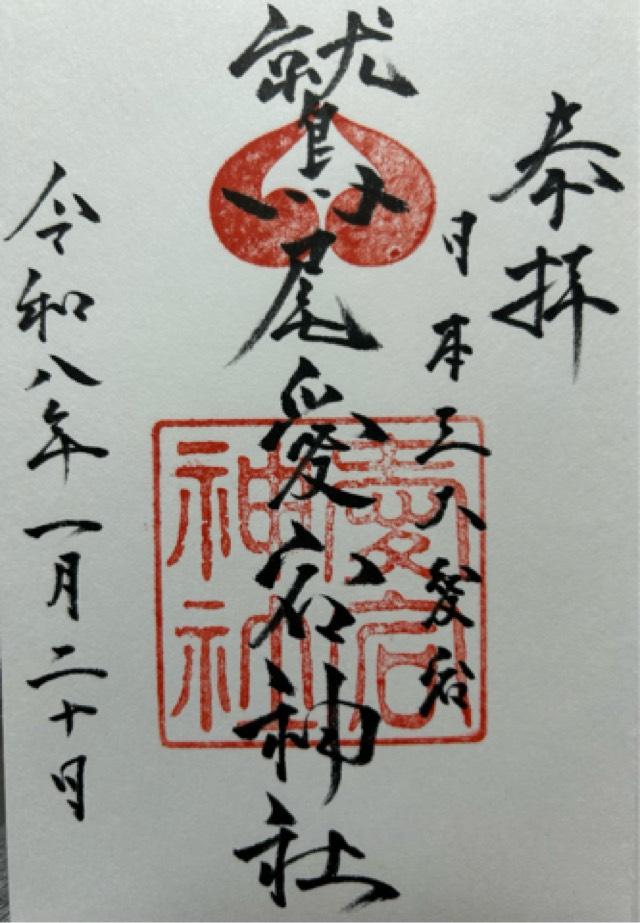 奉拝
日本三大愛宕
鷲尾愛宕神社
愛宕
神社
令和八年一月二十日